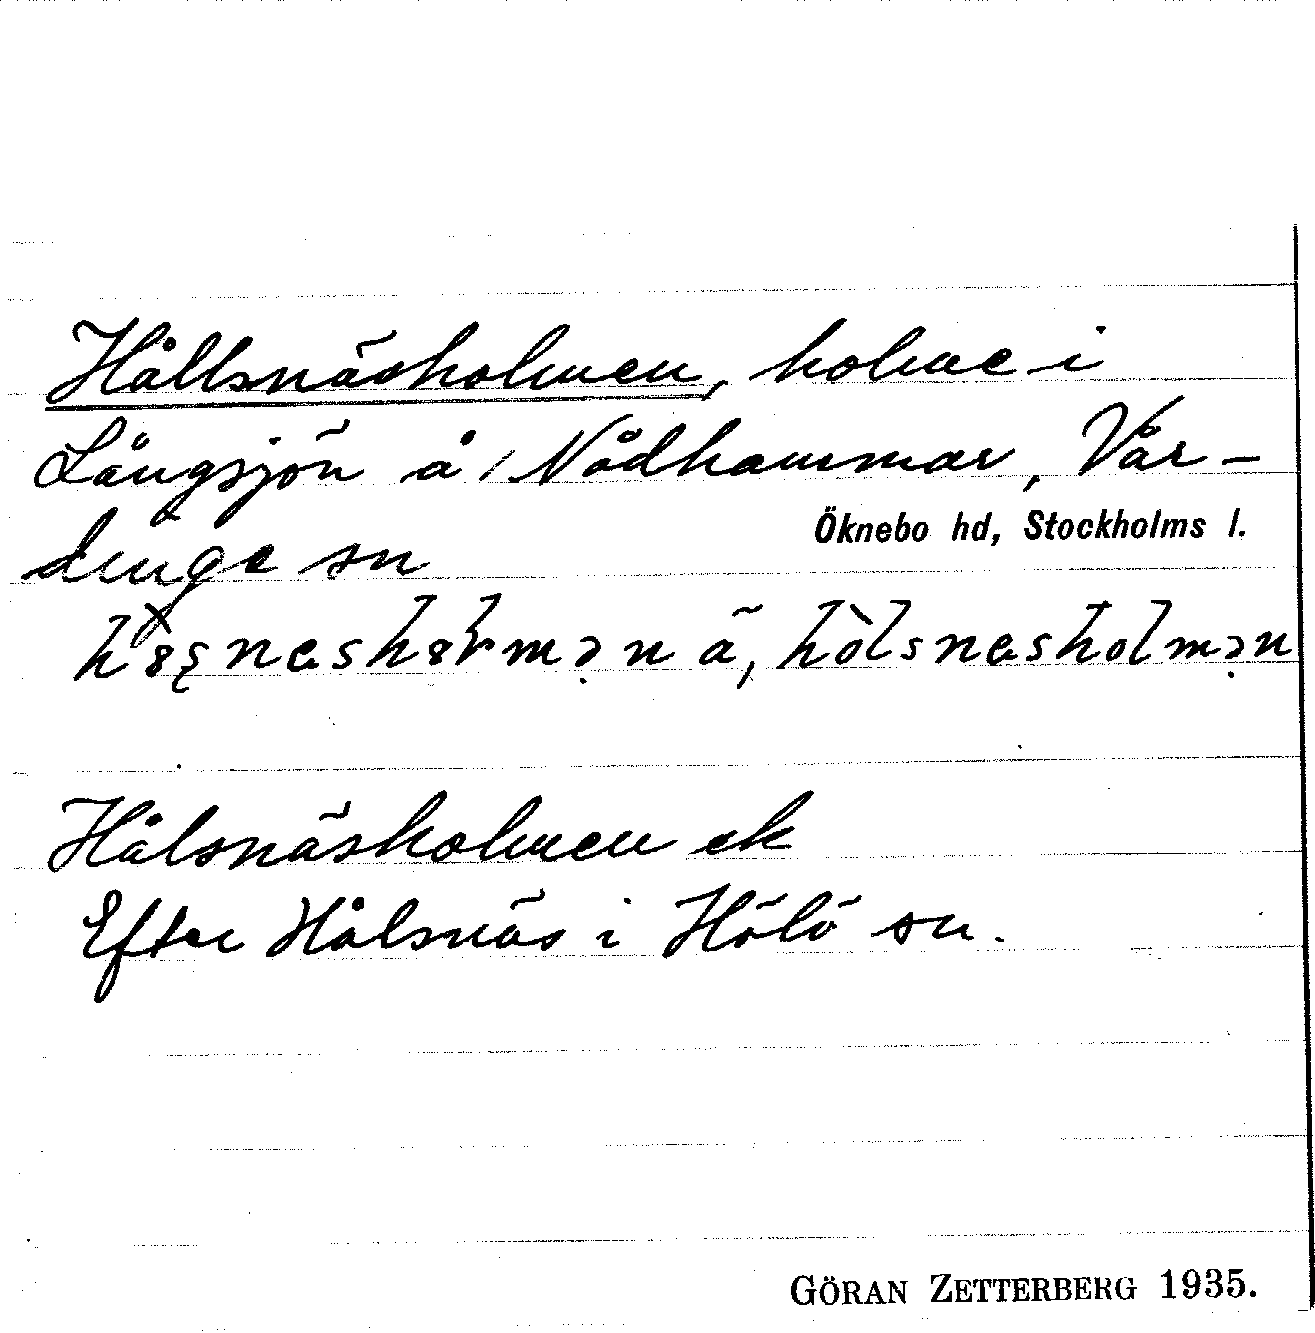 Hållsnäsholmen, holme i
Långsjön å Nådhammar, Vår-
dinge sn
Öknebo hd, Stockholms l.
hòlsnasholmən
Hålsnäsholmen ek
Efter Hålsnäs i Hölö sn.
GÖRAN ZETTERBERG 1935.